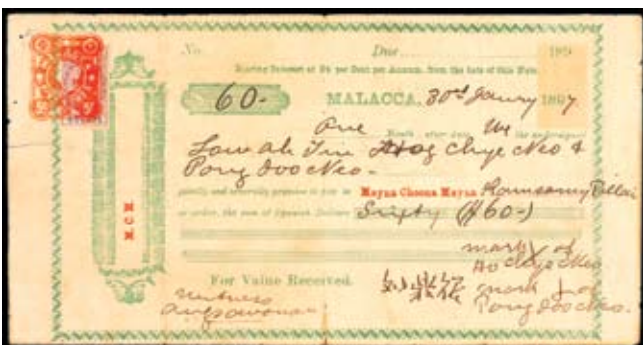 No. Due 189
Bearing Interest at per Cent per Annum, from the date of this Note
60- MALACCA, 30th Janry 1897
One Month after date We the undersigned
Low Ah Tin Chye Neo &
Pong Doo Neo -
jointly and severally promise to pay to Mayna Choona Mayna Ramsamy Pillai
or order, the sum of Spanish Dollars Sixty ($60-)
M C M
mark of
Ho Chye Neo
For Value Received.
mark of
Witness
Pong Doo Neo.